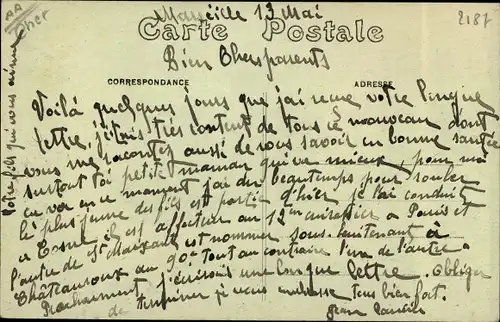 Marseille 13 Mai
2187
Cher
Carte Postale
Bien Chers parents
CORRESPONDANCE
ADRESSE
Voilà quelques jours que j'ai reçue votre longue
lettre, j'étais très content de tous ce nouveau dont
vous me racontez aussi de vous savoir en bonne santée
surtout toi petite maman qui va mieux, pour moi
ça va en ce moment j'ai du beau temps pour rouler
le plus jeune des fils est partie d'hier, je l'ai conduit
à Cosne il est affecter au 12em cuirassier a Paris et
l'autre de St Maixant est nommer sous-lieutenant à
Châteauroux au 90e tout au contraire l'un de l'autre
Prochainement j'écrirais une longue lettre. Obliger
de terminer je vous embrasse tous bien fort.
Jean
votre fils qui vous aime